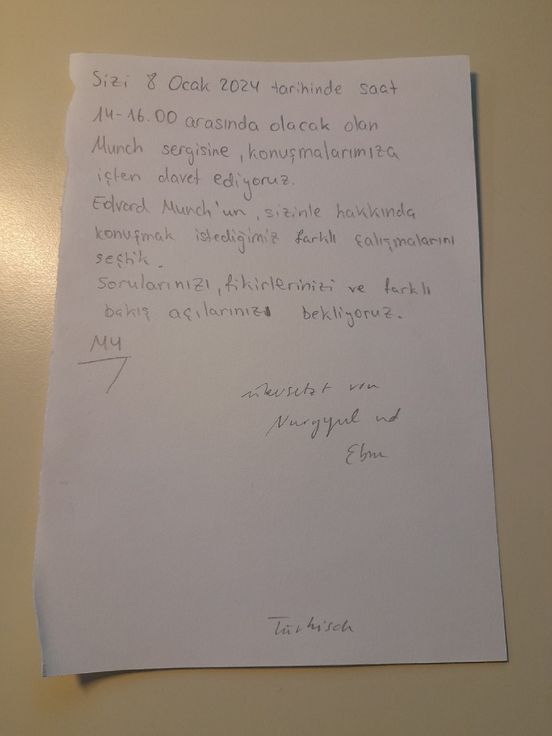 Sizi 8 Ocak 2024 tarihinde saat
14-16.00 arasında olacak olan
Munch sergisine, konuşmalarımıza
içten davet ediyoruz.
Edvard Munch'un, sizinle hakkında
konuşmak istediğimiz farklı çalışmalarını
seçtik.
Sorularınızı, fikirlerinizi ve farklı
bakış açılarınızı bekliyoruz.
M4
übersetzt von
Nurgyul und
Ebru
Türkisch